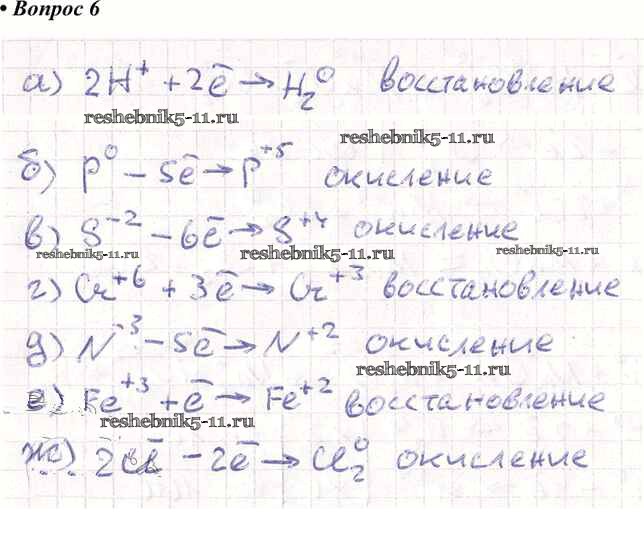 • Вопрос 6
а) 2H⁺ + 2ē → H₂⁰ восстановление
reshebnik5-11.ru
reshebnik5-11.ru
б) P⁰ - 5ē → P⁺⁵ окисление
в) S⁻² - 6ē → S⁺⁴ окисление
reshebnik5-11.ru reshebnik5-11.ru reshebnik5-11.ru
г) Cr⁺⁶ + 3ē → Cr⁺³ восстановление
д) N⁻³ - 5ē → N⁺² окисление
reshebnik5-11.ru
е) Fe⁺³ + ē → Fe⁺² восстановление
reshebnik5-11.ru
ж) 2Cl⁻ - 2ē → Cl₂⁰ окисление